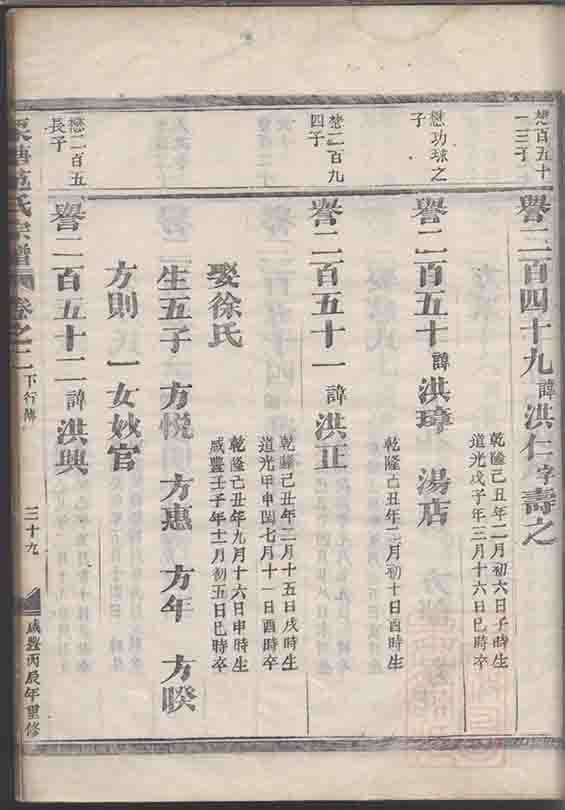 懋百五十一三子
譽二百四十九 諱洪仁字壽之
乾隆己丑年二月初六日子時生
道光戊子年二月十六日巳時卒
懋功球之子
譽二百五十 諱洪璋 湯店
乾隆己丑年二月初十日酉時生
懋二百九四子
譽二百五十一 諱洪正
乾隆己丑年二月十五日戌時生
道光甲申閏七月十一日酉時卒
娶徐氏
乾隆己丑年九月十六日申時生
咸豐壬子年十二月初五日巳時卒
生五子 方悅 方惠 方年 方暌
方則 一女妙官
懋二百五長子
譽二百五十二 諱洪興
氏宗譜 卷之二 下行傳 三十九 咸豐丙辰年重修